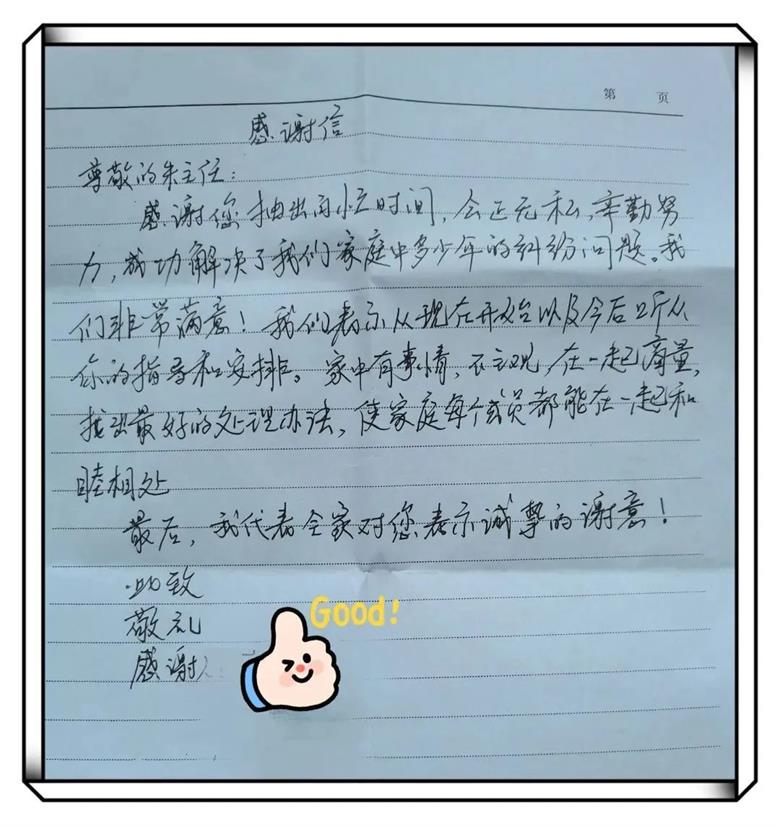 第 页
感谢信
尊敬的朱主任：
感谢您抽出百忙时间，公正无私，辛勤努
力，成功解决了我们家庭中多少年的纠纷问题。我
们非常满意！我们表示从现在开始以及今后听从
你的指导和安排。家中有事情，不主观，在一起商量，
找出最好的处理办法，使家庭每个成员都能在一起和
睦相处
最后，我代表全家对您表示诚挚的谢意！
此致
敬礼
感谢人
Good!